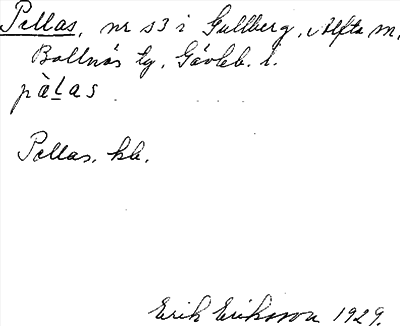 Pellas, nr s3 i Gullberg, Alfta sn,
Bollnäs tg, Gävleb. l.
pàlas
Pellas, kb.
Erik Eriksson 1929.